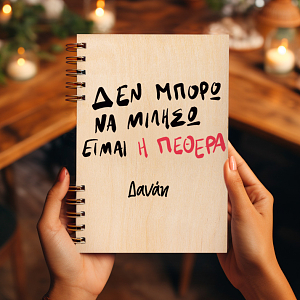 ΔΕΝ ΜΠΟΡΩ
ΝΑ ΜΙΛΗΣΩ
ΕΙΜΑΙ Η ΠΕΘΕΡΑ
Δανάη